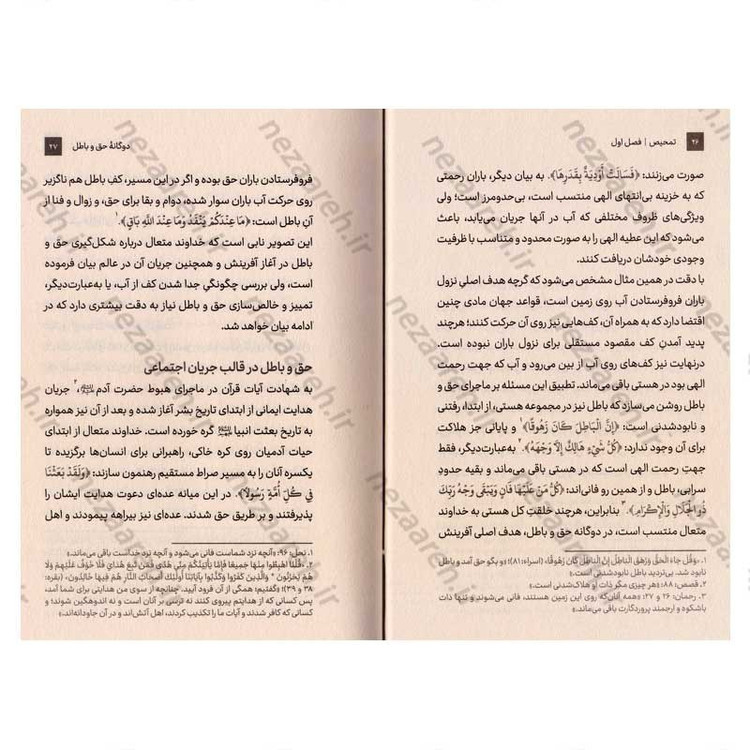 ۲۶ تمحیص | فصل اول
صورت می‌زنند: ﴿فَسَالَتْ أَوْدِيَةٌ بِقَدَرِهَا﴾. به بیان دیگر، باران رحمتی
که به خزینه بی‌انتهای الهی منتسب است، بی‌حدومرز است؛ ولی
ویژگی‌های ظروف مختلفی که آب در آنها جریان می‌یابد، باعث
می‌شود که این عطیه الهی را به صورت محدود و متناسب با ظرفیت
وجودی خودشان دریافت کنند.
با دقت در همین مثال مشخص می‌شود که گرچه هدف اصلی نزول
باران فروفرستادن آب روی زمین است، قواعد جهان مادی چنین
اقتضا دارد که به همراه آن، کف‌هایی نیز روی آن حرکت کنند؛ هرچند
پدید آمدن کف مقصود مستقلی برای نزول باران نبوده است.
درنهایت نیز کف‌های روی آب از بین می‌رود و آب که جهت رحمت
الهی بود در هستی باقی می‌ماند. تطبیق این مسئله بر ماجرای حق و
باطل روشن می‌سازد که باطل نیز در مجموعه هستی، از ابتدا، رفتنی
و نابودشدنی است: ﴿إِنَّ الْبَاطِلَ كَانَ زَهُوقًا﴾ ۱ و پایانی جز هلاکت
برای آن وجود ندارد: ﴿كُلُّ شَيْءٍ هَالِكٌ إِلَّا وَجْهَهُ﴾. ۲ به‌عبارت‌دیگر، فقط
جهت رحمت الهی است که در هستی باقی می‌ماند و بقیه حدودِ
سرابی، باطل و از همین رو فانی‌اند: ﴿كُلُّ مَنْ عَلَيْهَا فَانٍ وَيَبْقَى وَجْهُ رَبِّكَ
ذُو الْجَلَالِ وَالْإِكْرَامِ﴾. ۳ بنابراین، هرچند خلقتِ کل هستی به خداوند
متعال منتسب است، در دوگانه حق و باطل، هدف اصلی آفرینش
۱. «وَقُلْ جَاءَ الْحَقُّ وَزَهَقَ الْبَاطِلُ إِنَّ الْبَاطِلَ كَانَ زَهُوقًا» (اسراء: ۸۱)؛ «و بگو حق آمد و باطل
نابود شد. بی‌تردید باطل نابودشدنی است.»
۲. قصص: ۸۸: «هر چیزی مگر ذات او هلاک‌شدنی است.»
۳. رحمان: ۲۶ و ۲۷: «همه آنان‌که روی این زمین هستند، فانی می‌شوند و تنها ذات
باشکوه و ارجمند پروردگارت باقی می‌ماند.»
دوگانهٔ حق و باطل ۲۷
فروفرستادن باران حق بوده و اگر در این مسیر، کفِ باطل هم ناگزیر
روی حرکت آب باران سوار شده، دوام و بقا برای حق، و زوال و فنا از
آنِ باطل است: ﴿مَا عِنْدَكُمْ يَنْفَدُ وَمَا عِنْدَ اللَّهِ بَاقٍ﴾. ۱
این تصویر نابی است که خداوند متعال درباره شکل‌گیری حق و
باطل در آغاز آفرینش و همچنین جریان آن در عالم بیان فرموده
است، ولی بررسی چگونگیِ جدا شدن کف از آب، یا به‌عبارت‌دیگر،
تمییز و خالص‌سازی حق و باطل نیاز به دقت بیشتری دارد که در
ادامه بیان خواهد شد.
حق و باطل در قالب جریان اجتماعی
به شهادت آیات قرآن در ماجرای هبوط حضرت آدم، ۲ جریان
هدایت ایمانی از ابتدای تاریخ بشر آغاز شده و بعد از آن نیز همواره
به تاریخ بعثت انبیا گره خورده است. خداوند متعال از ابتدای
حیات آدمیان روی کره خاکی، راهبرانی برای انسان‌ها برگزیده تا
یکسره آنان را به مسیر صراط مستقیم رهنمون سازند: ﴿وَلَقَدْ بَعَثْنَا
فِي كُلِّ أُمَّةٍ رَسُولًا﴾. در این میانه عده‌ای دعوت هدایت ایشان را
پذیرفتند و بر طریق حق شدند. عده‌ای نیز بیراهه پیمودند و اهل
۱. نحل: ۹۶: «آنچه نزد شماست فانی می‌شود و آنچه نزد خداست باقی می‌ماند.»
۲. «قُلْنَا اهْبِطُوا مِنْهَا جَمِيعًا فَإِمَّا يَأْتِيَنَّكُمْ مِنِّي هُدًى فَمَنْ تَبِعَ هُدَايَ فَلَا خَوْفٌ عَلَيْهِمْ وَلَا
هُمْ يَحْزَنُونَ * وَالَّذِينَ كَفَرُوا وَكَذَّبُوا بِآيَاتِنَا أُولَئِكَ أَصْحَابُ النَّارِ هُمْ فِيهَا خَالِدُونَ» (بقره:
۳۸ و ۳۹)؛ «گفتیم: همگی از آن فرود آیید. چنانچه از سوی من هدایتی برای شما آمد،
کسانی که از هدایتم پیروی کنند نه ترسی بر آنان است و نه اندوهگین شوند؛ و
کسانی که کافر شدند و آیات ما را تکذیب کردند، اهل آتش‌اند و در آن جاودانه‌اند.»
nezaareh.ir